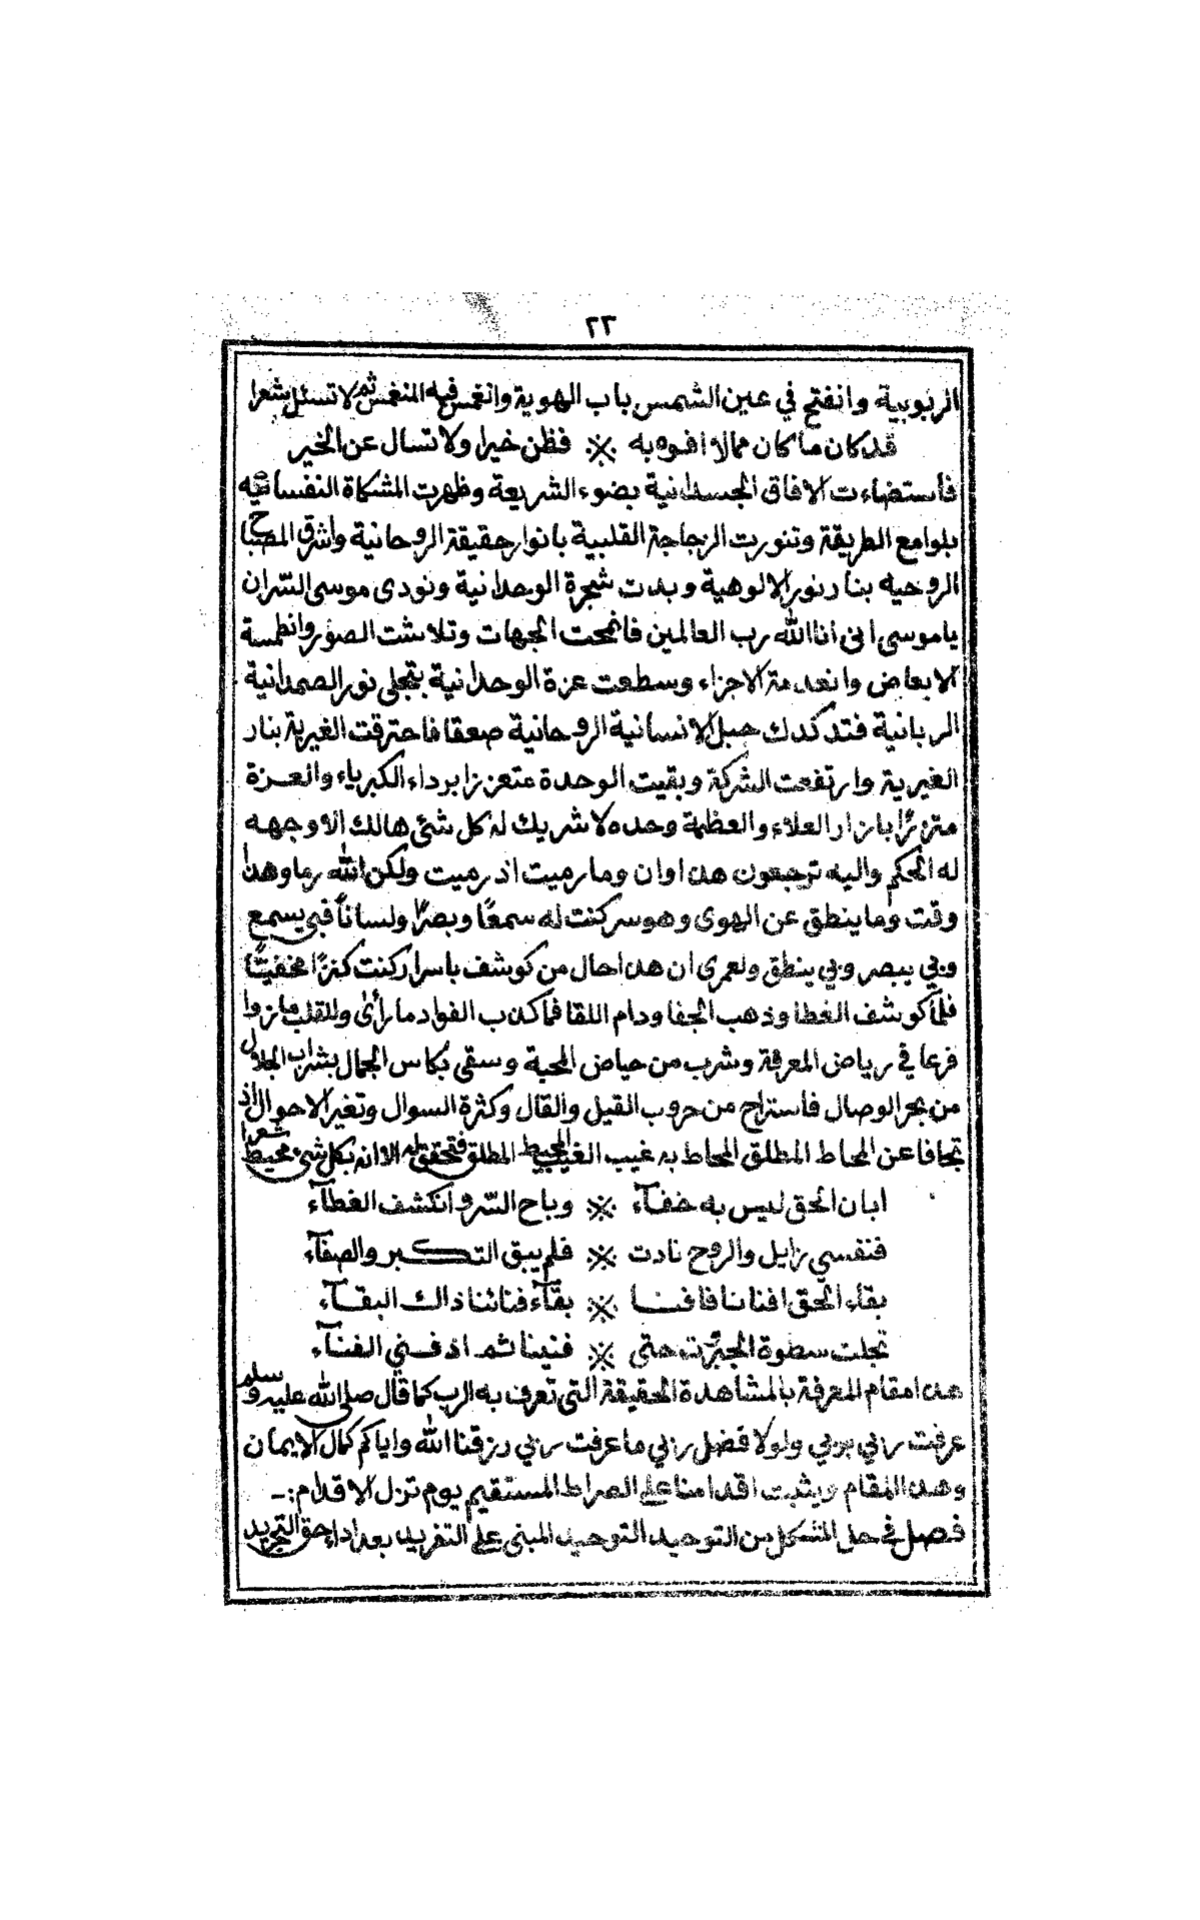 ٢٣
الربوبية وانفتح في عين الشمس باب الهوية وانغمس فيه المنغمس ثم لا تسئل شعرا
قد كان ما كان ممالا افوه به ※ فظن خيرا ولا تسال عن الخير
فأستضاءت الافاق الجسدانية بضوء الشريعة وظهرت المشكاة النفسانيه
بلوامع الطريقة وتنورت الزجاجة القلبية بانوار حقيقة الروحانية واشرق المصباح
الروحيه بنار نور الالوهية وبدت شجرة الوحدانية ونودى موسى السّران
ياموسى انى انا الله رب العالمين فانمحت الجهات وتلاشت الصور وانطمسة
الابعاض وانعدمة الاجزاء وسطعت عزة الوحدانية بتجلى نور الصمدانية
الربانية فتدكدك جبل الانسانية الروحانية صعقا فاحترقت الغيرية بنار
الغيرية وارتفعت الشركة وبقيت الوحدة متعززا برداء الكبرياء والعزة
متزرًا بازار العلاء والعظمة وحده لا شريك له كل شئ هالك الا وجهه
له الحكم واليه ترجعون هذا اوان وما رميت اذ رميت ولكن الله رما وهذا
وقت وما ينطق عن الهوى وهو سر كنت له سمعًا وبصرًا ولساناً فبى يسمع
وبي يبصر وبي ينطق ولعمرى ان هذا حال من كوشف باسرار كنت كنزًا مخفيًّا
فلمّا كوشف الغطا وذهب الجفا ودام اللقا فما كذب الفواد ما رأى وللقلب ما زوا
فرعا في رياض المعرفة وشرب من حياض المحبة وسقى بكاس الجمال بشراب الجلال
من بحر الوصال فاستراح من حروب القيل والقال وكثرة السوال وتغير الاحوال اذ
تجافا عن المحاط المطلق المحاط به غيب الغيب المحيط المطلق فتحقق له الا انه بكل شئ محيط شعرا
ابان الحق ليس به خفآء ※ وباح السّر وانكشف الغطآء
فنفسي زايل والروح نادت ※ فلم يبق التكبر والصفآء
بقاء الحق افنانا فافنا ※ بقآء فنائنا ذاك البقآء
تجلت سطوة الجبّرت حتى ※ فنينا ثم اذ فني الفنآء
هذا مقام المعرفة بالمشاهدة الحقيقة التي تعرف به الرب كما قال صلى الله عليه وسلم
عرفت ربي بربي ولولا فضل ربي ما عرفت ربي رزقنا الله واياكم كمال الايمان
وهذا المقام ويثبت اقدامنا على الصراط المستقيم يوم تزل الاقدام:ـ
فصل في حل المشكل من التوحيد التوحيد المبنى على التفريد بعد اداء حق التجريد